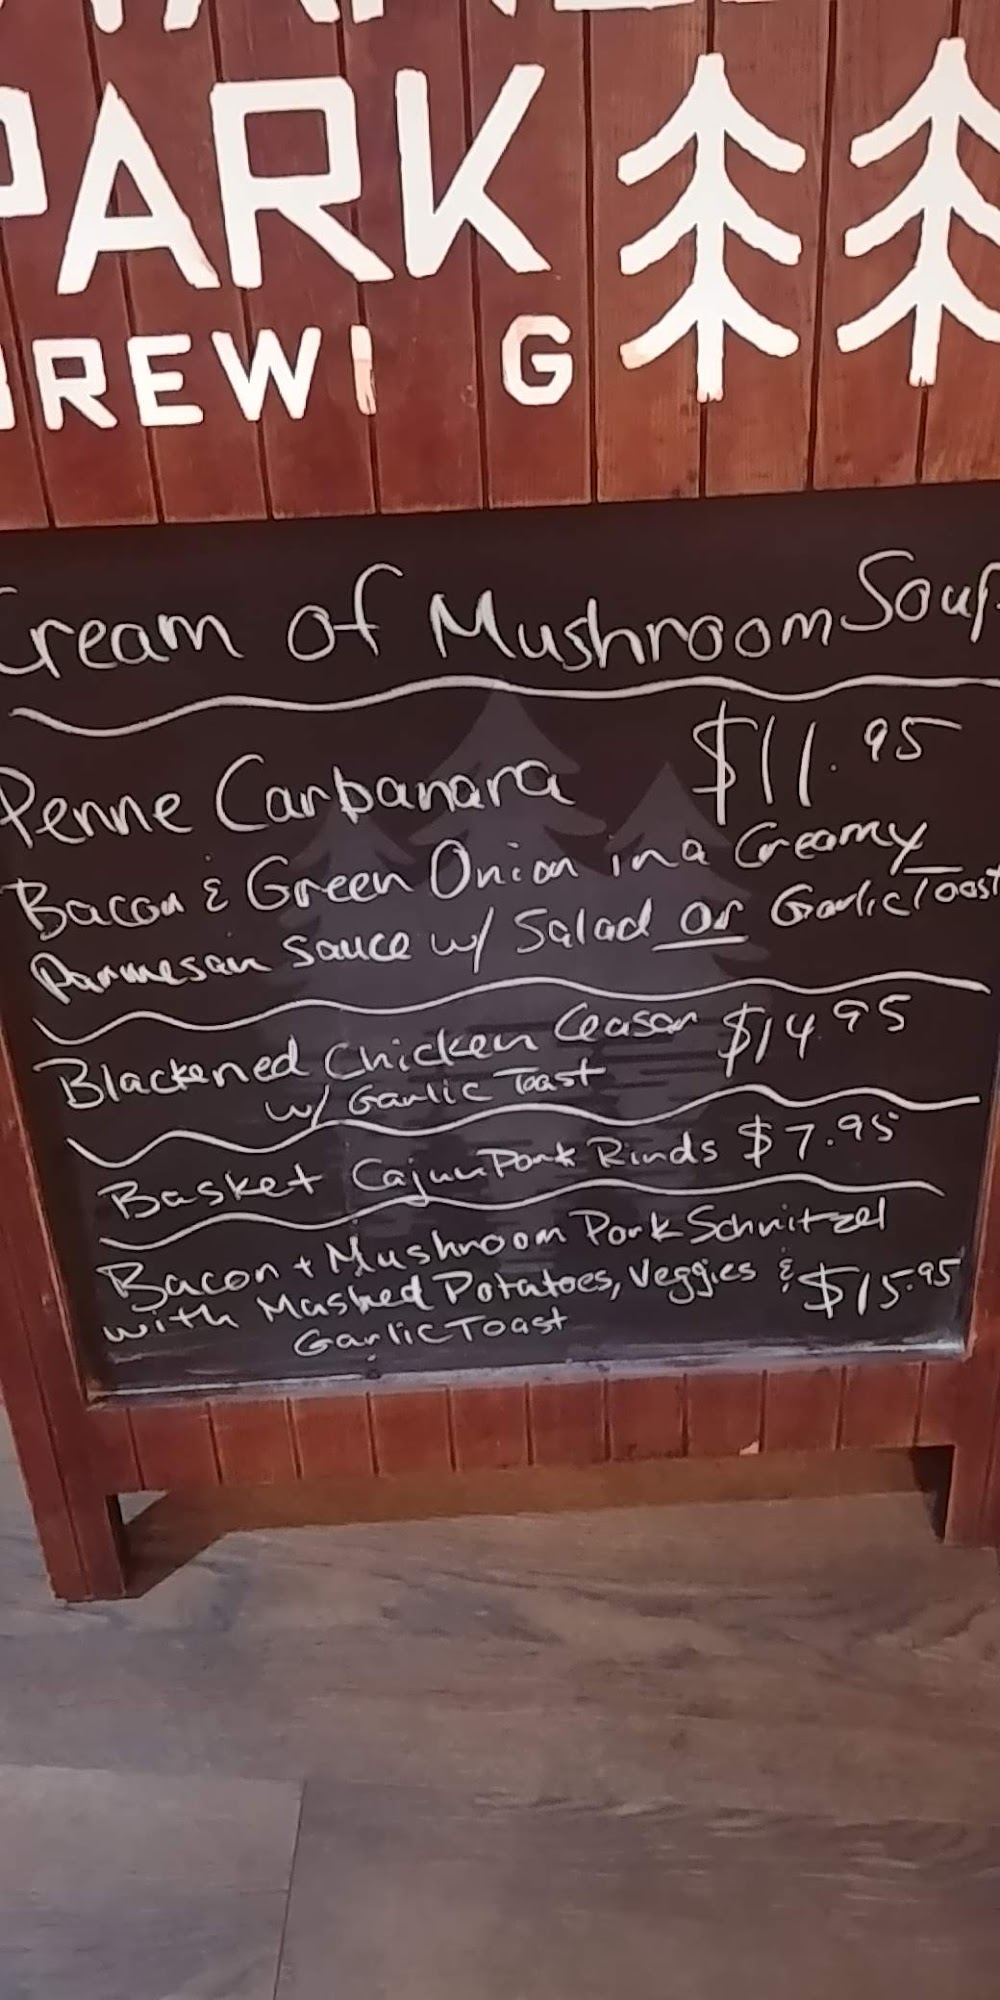 PARK
BREWI G
Cream of Mushroom Soup
Penne Carbanara $11.95
Bacon & Green Onion in a Creamy
Parmesan Sauce w/ Salad or Garlic Toast
Blackened Chicken Ceasar $14.95
w/ Garlic Toast
Basket Cajun Pork Rinds $7.95
Bacon + Mushroom Pork Schnitzel
with Mashed Potatoes, Veggies & $15.95
Garlic Toast